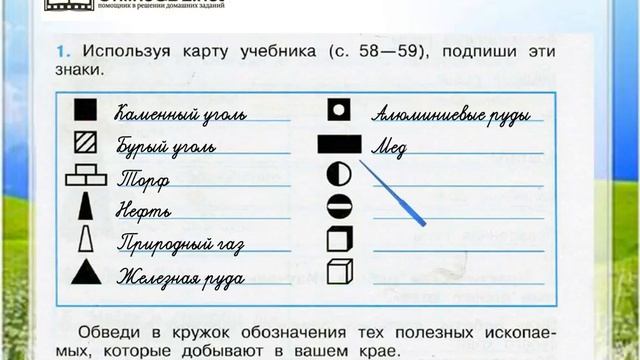 помощник в решении домашних заданий
1. Используя карту учебника (с. 58—59), подпиши эти
знаки.
Каменный уголь
Бурый уголь
Торф
Нефть
Природный газ
Железная руда
Алюминиевые руды
Мед
Обведи в кружок обозначения тех полезных ископае-
мых, которые добывают в вашем крае.